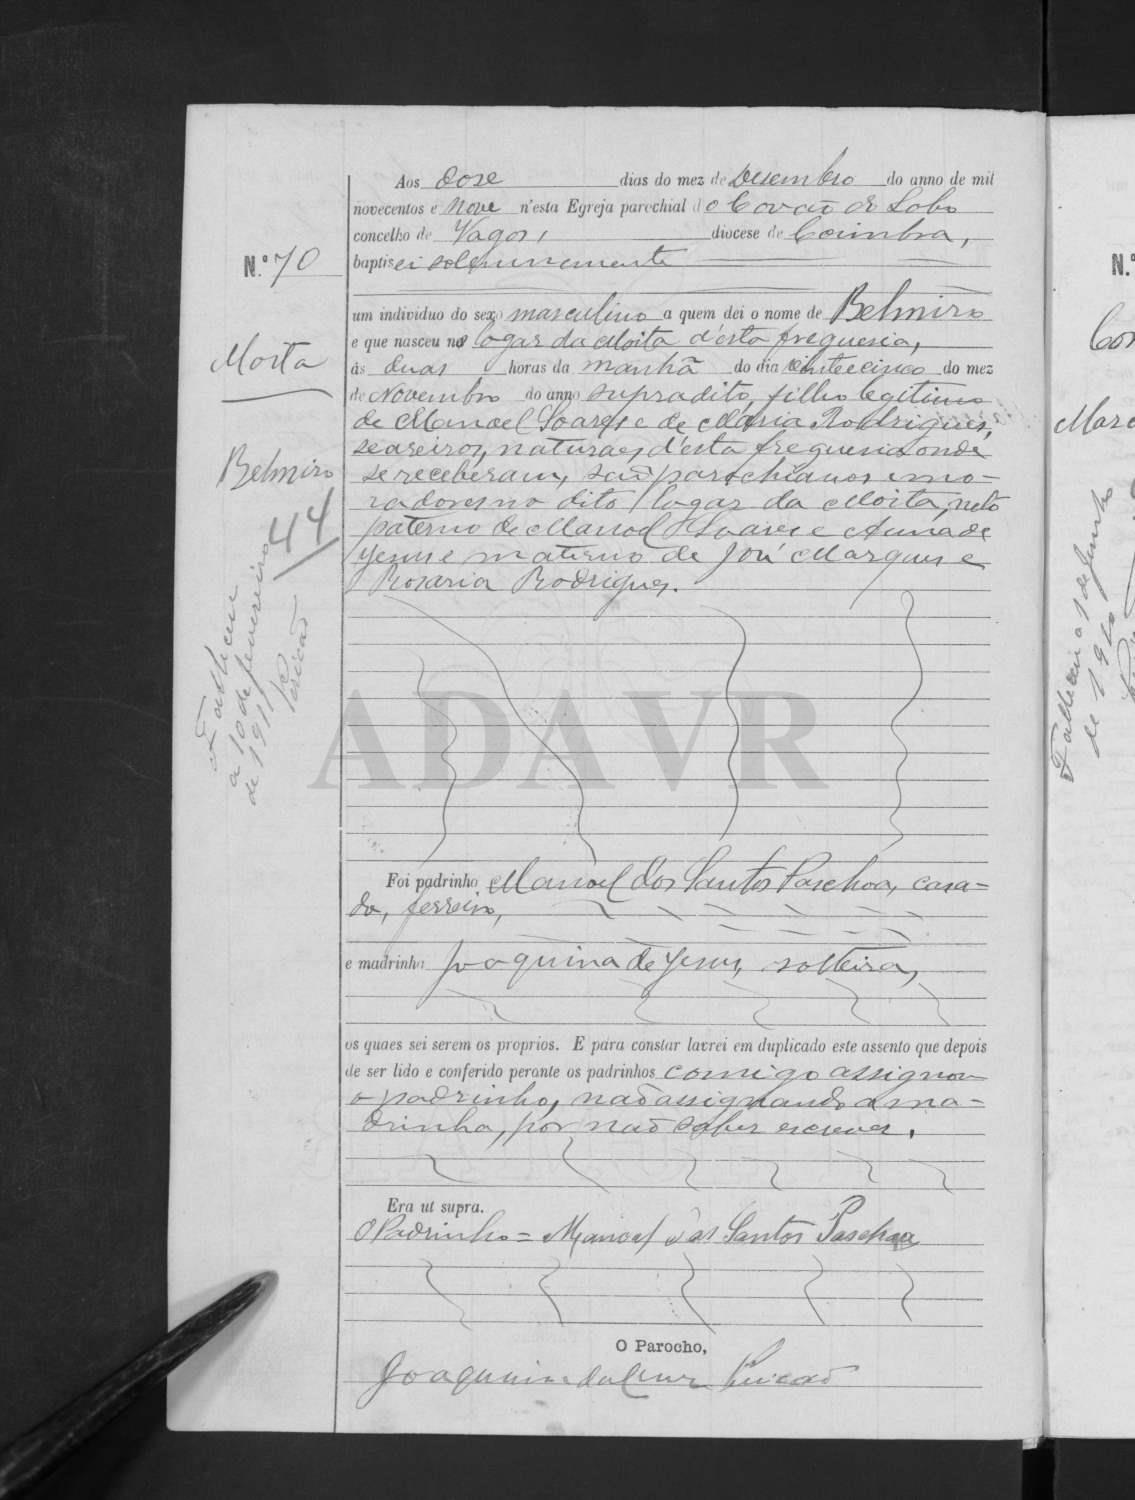 Aos dose dias do mez de Desembro do anno de mil
novecentos e nove n'esta Egreja parochial do Covão do Lobo
concelho de Vagos, diocese de Coimbra,
baptisei solemnemente
N.º 70
um individuo do sexo masculino a quem dei o nome de Belmiro
e que nasceu no logar da Moita d'esta freguesia,
ás duas horas da manhã do dia vinte e cinco do mez
de Novembro do anno supradito, filho legitimo
de Manoel Soares e de Maria Rodrigues,
seareiros, naturaes d'esta freguesia onde
se receberam, são parochianos e mo-
radores no dito logar da Moita, neto
paterno de Manoel Soares e Anna de
Jesus e materno de José Marques e
Rosaria Rodrigues.
Moita
Belmiro
44
Falleceu
a 10 de fevereiro
de 1911
ADAVR
Foi padrinho Manoel dos Santos Paschoa, casa-
do, ferreiro,
e madrinha Joaquina de Jesus, solteira,
os quaes sei serem os proprios. E para constar lavrei em duplicado este assento que depois
de ser lido e conferido perante os padrinhos comigo assignou
o padrinho, não assignando a ma-
drinha, por não saber escrever.
Era ut supra.
O Padrinho = Manoel dos Santos Paschoa
O Parocho,
Joaquim da Cruz
N.º
Falleceu a 1 de Junho
de 1910